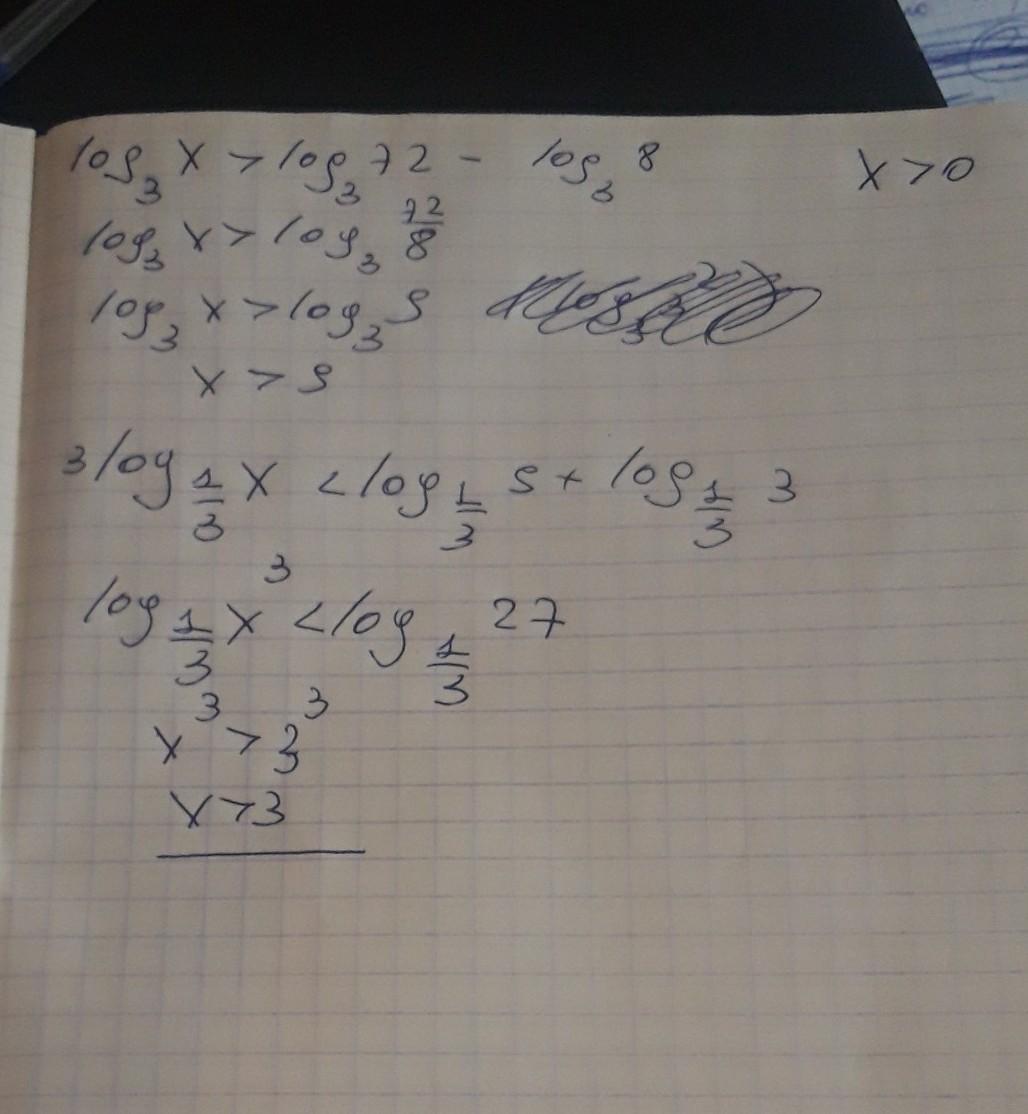 log₃ x > log₃ 72 - log₃ 8 x > 0
log₃ x > log₃ 72/8
log₃ x > log₃ 9
x > 9
3 log_{1/3} x < log_{1/3} 9 + log_{1/3} 3
log_{1/3} x³ < log_{1/3} 27
x³ > 3³
x > 3